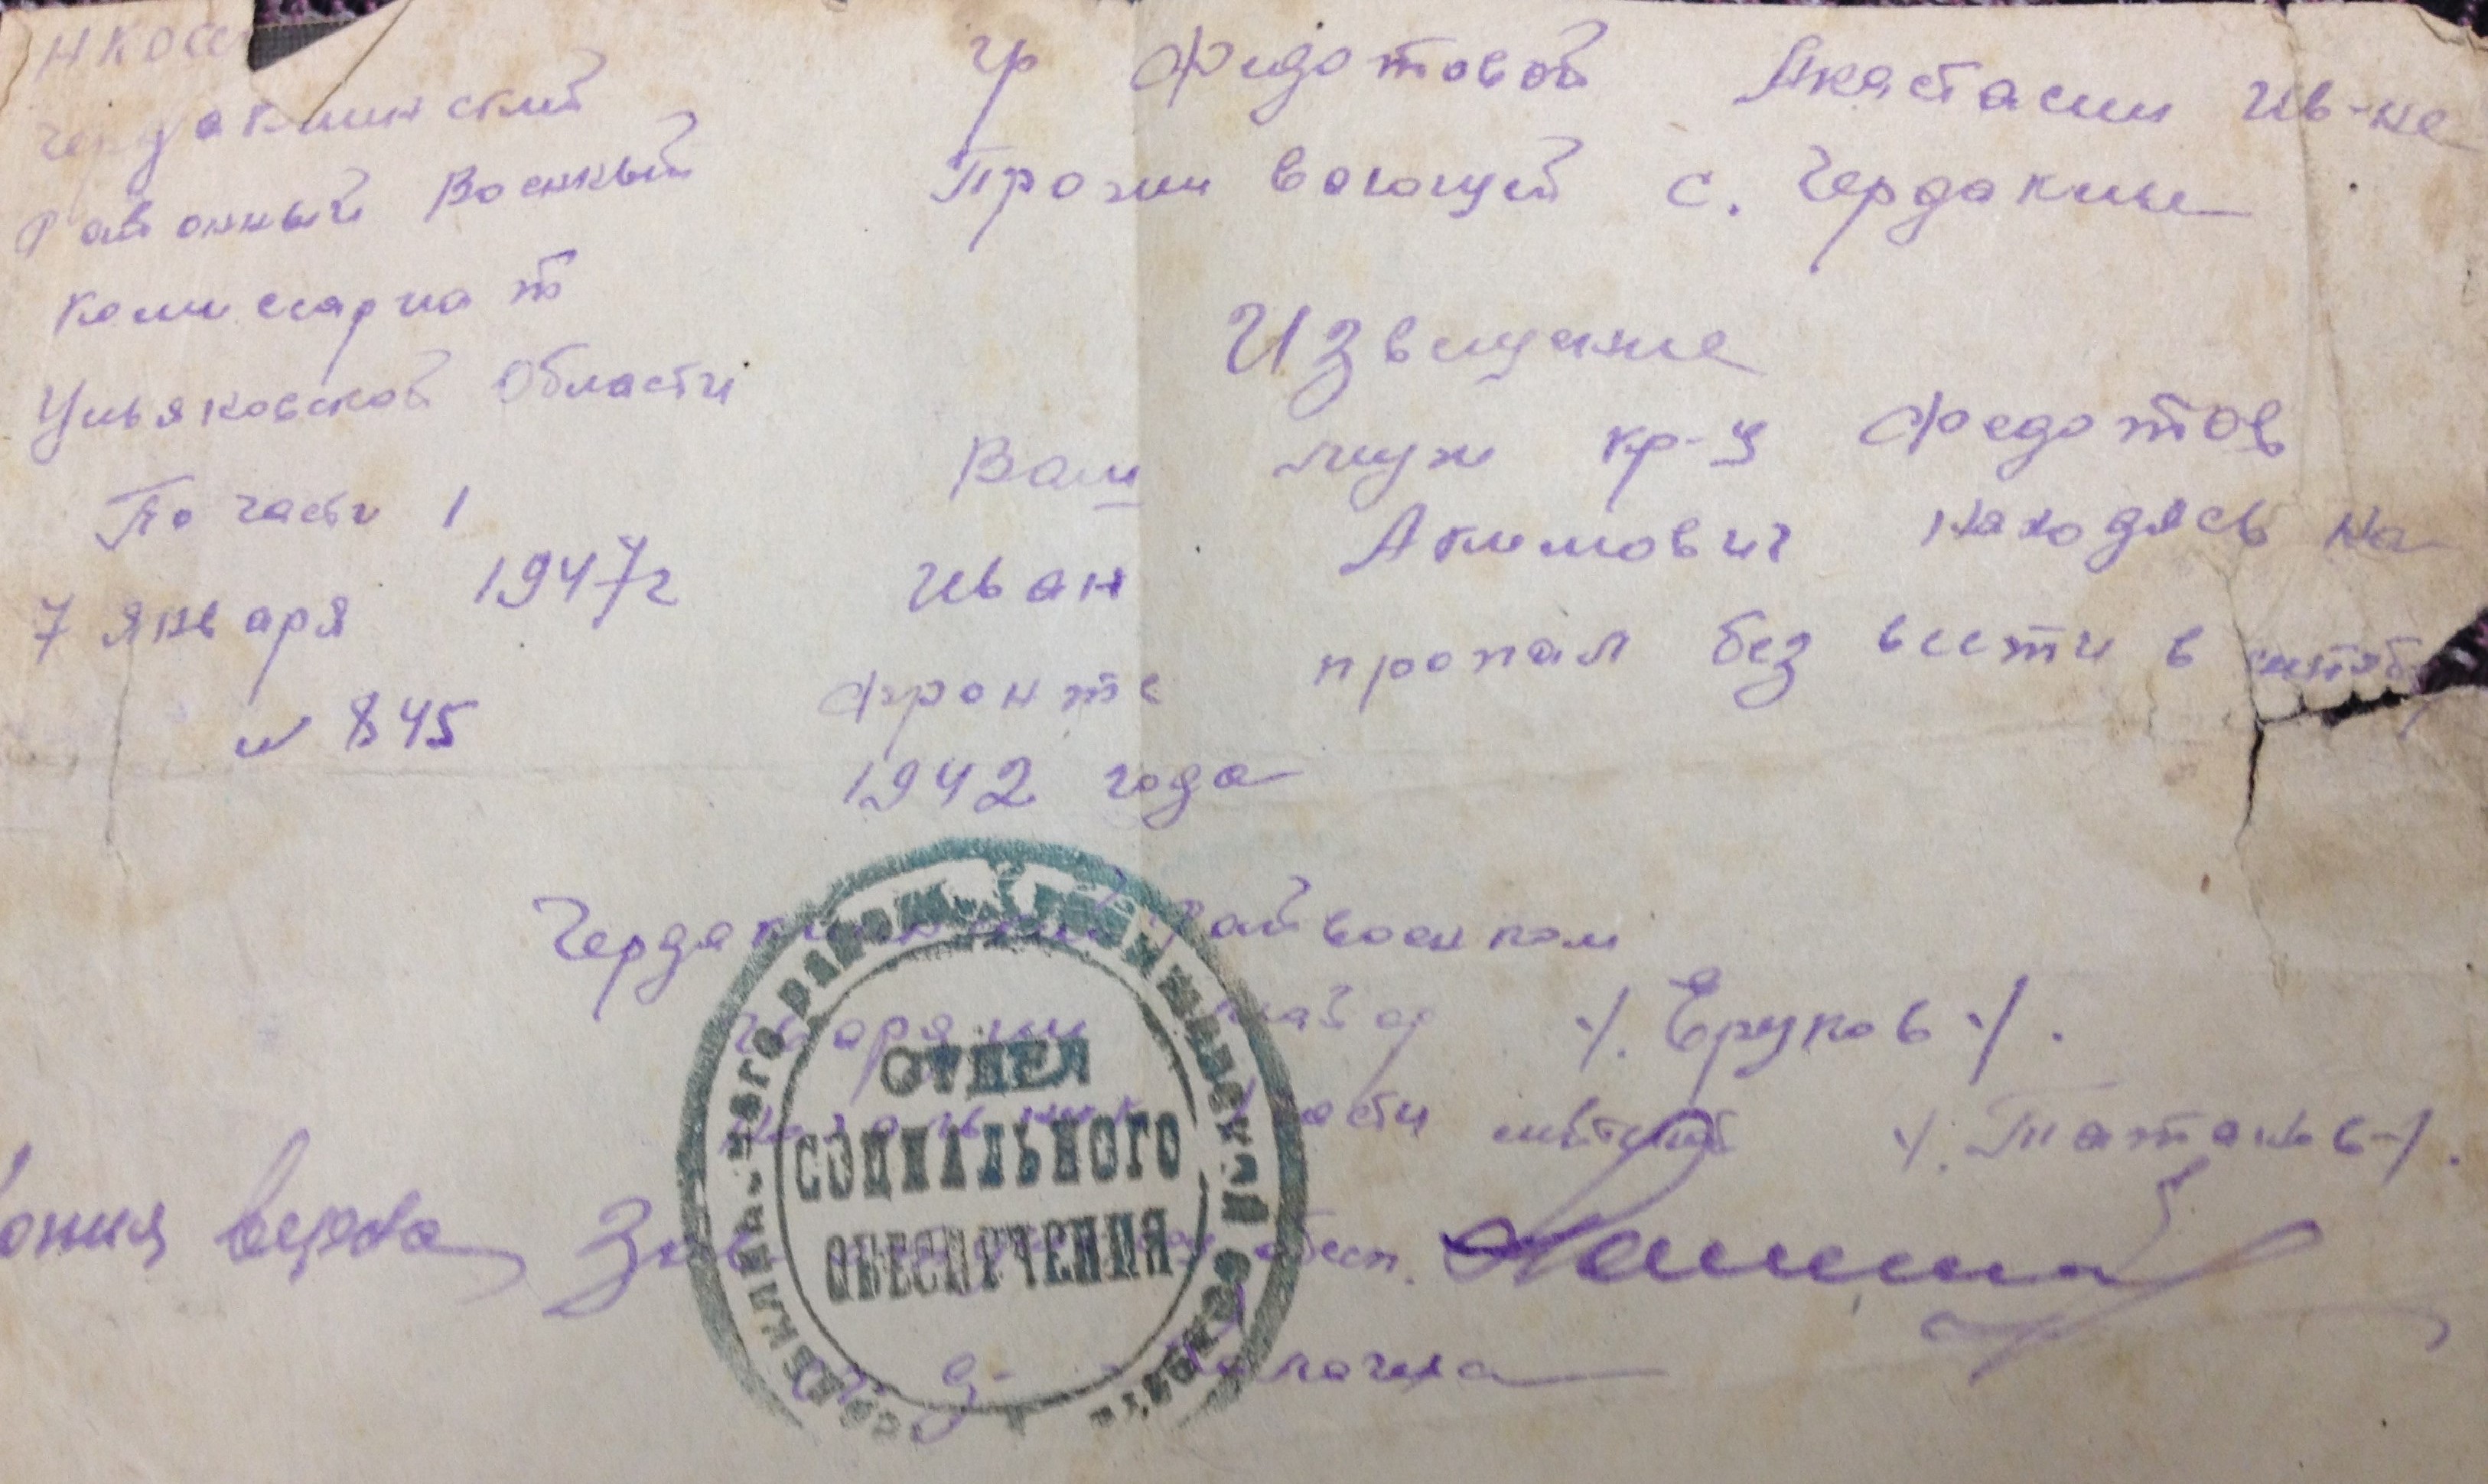 Чердаклинский
Районный Военный
Комиссариат
Ульяновской Области
По части 1
7 января 1947г
№ 845
гр Федотовой Анастасии Ив-не
Проживающей с. Чердаклы
Извещение
Ваш муж кр-ц Федотов
Иван Акимович находясь на
фронте пропал без вести в
1942 года
Чердаклинский Райвоенком
майор /. Еруков /.
части /.
Копия верна Зав. обесп.
ОТДЕЛ
СОЦИАЛЬНОГО
ОБЕСПЕЧЕНИЯ